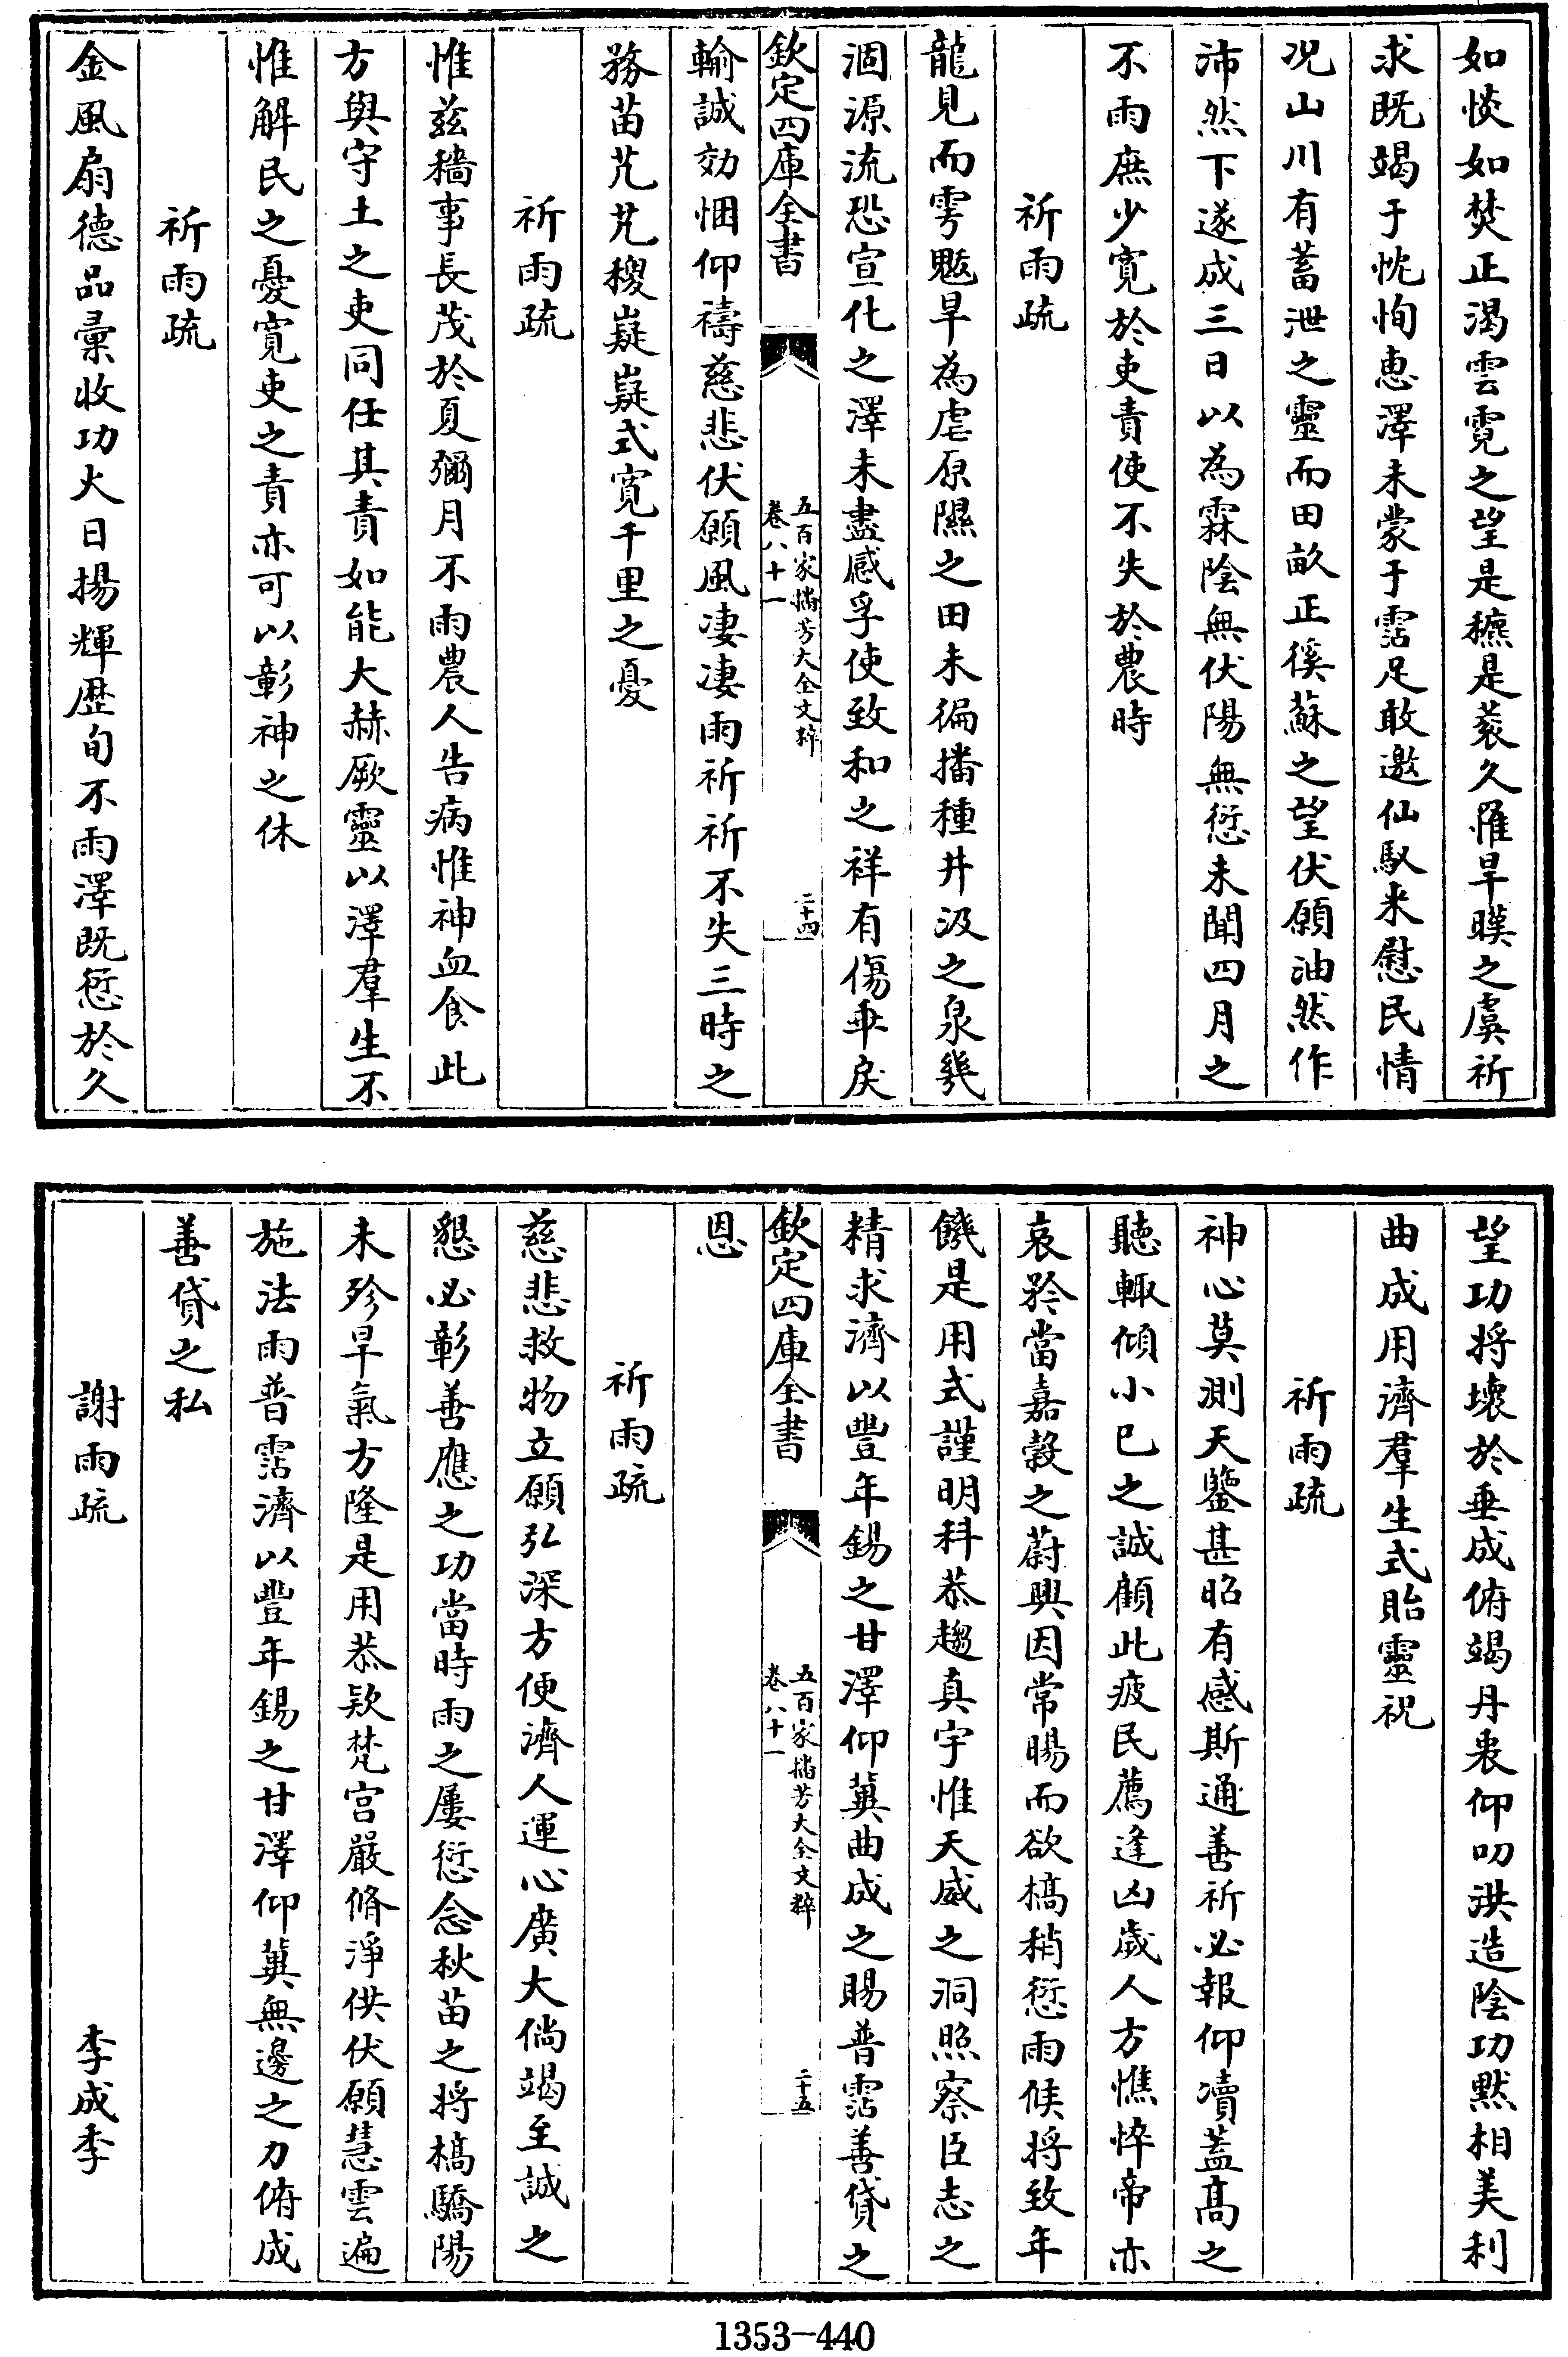 如惔如焚正渴雲霓之望是穮是蔉久罹旱暵之虞祈
求既竭于忱恂恵澤未蒙于霑足敢邀仙馭来慰民情
况山川有蓄泄之靈而田畝正徯蘇之望伏願油然作
沛然下遂成三日以為霖陰無伏陽無愆未聞四月之
不雨庶少寛於吏責使不失於農時
祈雨疏
龍見而雩魃旱為虐原隰之田未徧播種井汲之泉幾
涸源流恐宣化之澤未盡感孚使致和之祥有傷乖戾
欽定四庫全書
五百家播芳大全文粹
卷八十一
二十四
輸誠効悃仰禱慈悲伏願風凄凄雨祈祈不失三時之
務苗芃芃稷嶷嶷式寛千里之憂
祈雨疏
惟兹穡事長茂於夏彌月不雨農人告病惟神血食此
方與守土之吏同任其責如能大赫厥靈以澤羣生不
惟解民之憂寛吏之責亦可以彰神之休
祈雨疏
金風扇德品彚收功火日揚輝歴旬不雨澤既愆於久
望功将壊於垂成俯竭丹衷仰叨洪造陰功黙相美利
曲成用濟羣生式貽靈祝
祈雨疏
神心莫測天鑒甚昭有感斯通善祈必報仰凟蓋髙之
聽輙傾小已之誠顧此疲民薦逢凶歲人方憔悴帝亦
哀矜當嘉榖之蔚興因常暘而欲槁稍愆雨候将致年
饑是用式謹明科恭趨真宇惟天威之洞照察臣志之
精求濟以豐年錫之甘澤仰冀曲成之賜普霑善貸之
欽定四庫全書
五百家播芳大全文粹
卷八十一
二十五
恩
祈雨疏
慈悲救物立願弘深方便濟人運心廣大倘竭至誠之
懇必彰善應之功當時雨之屢愆念秋苗之将槁驕陽
未殄旱氣方隆是用恭欵梵宫嚴脩淨供伏願慧雲遍
施法雨普霑濟以豐年錫之甘澤仰冀無邊之力俯成
善貸之私
謝雨疏
李成季
1353-440